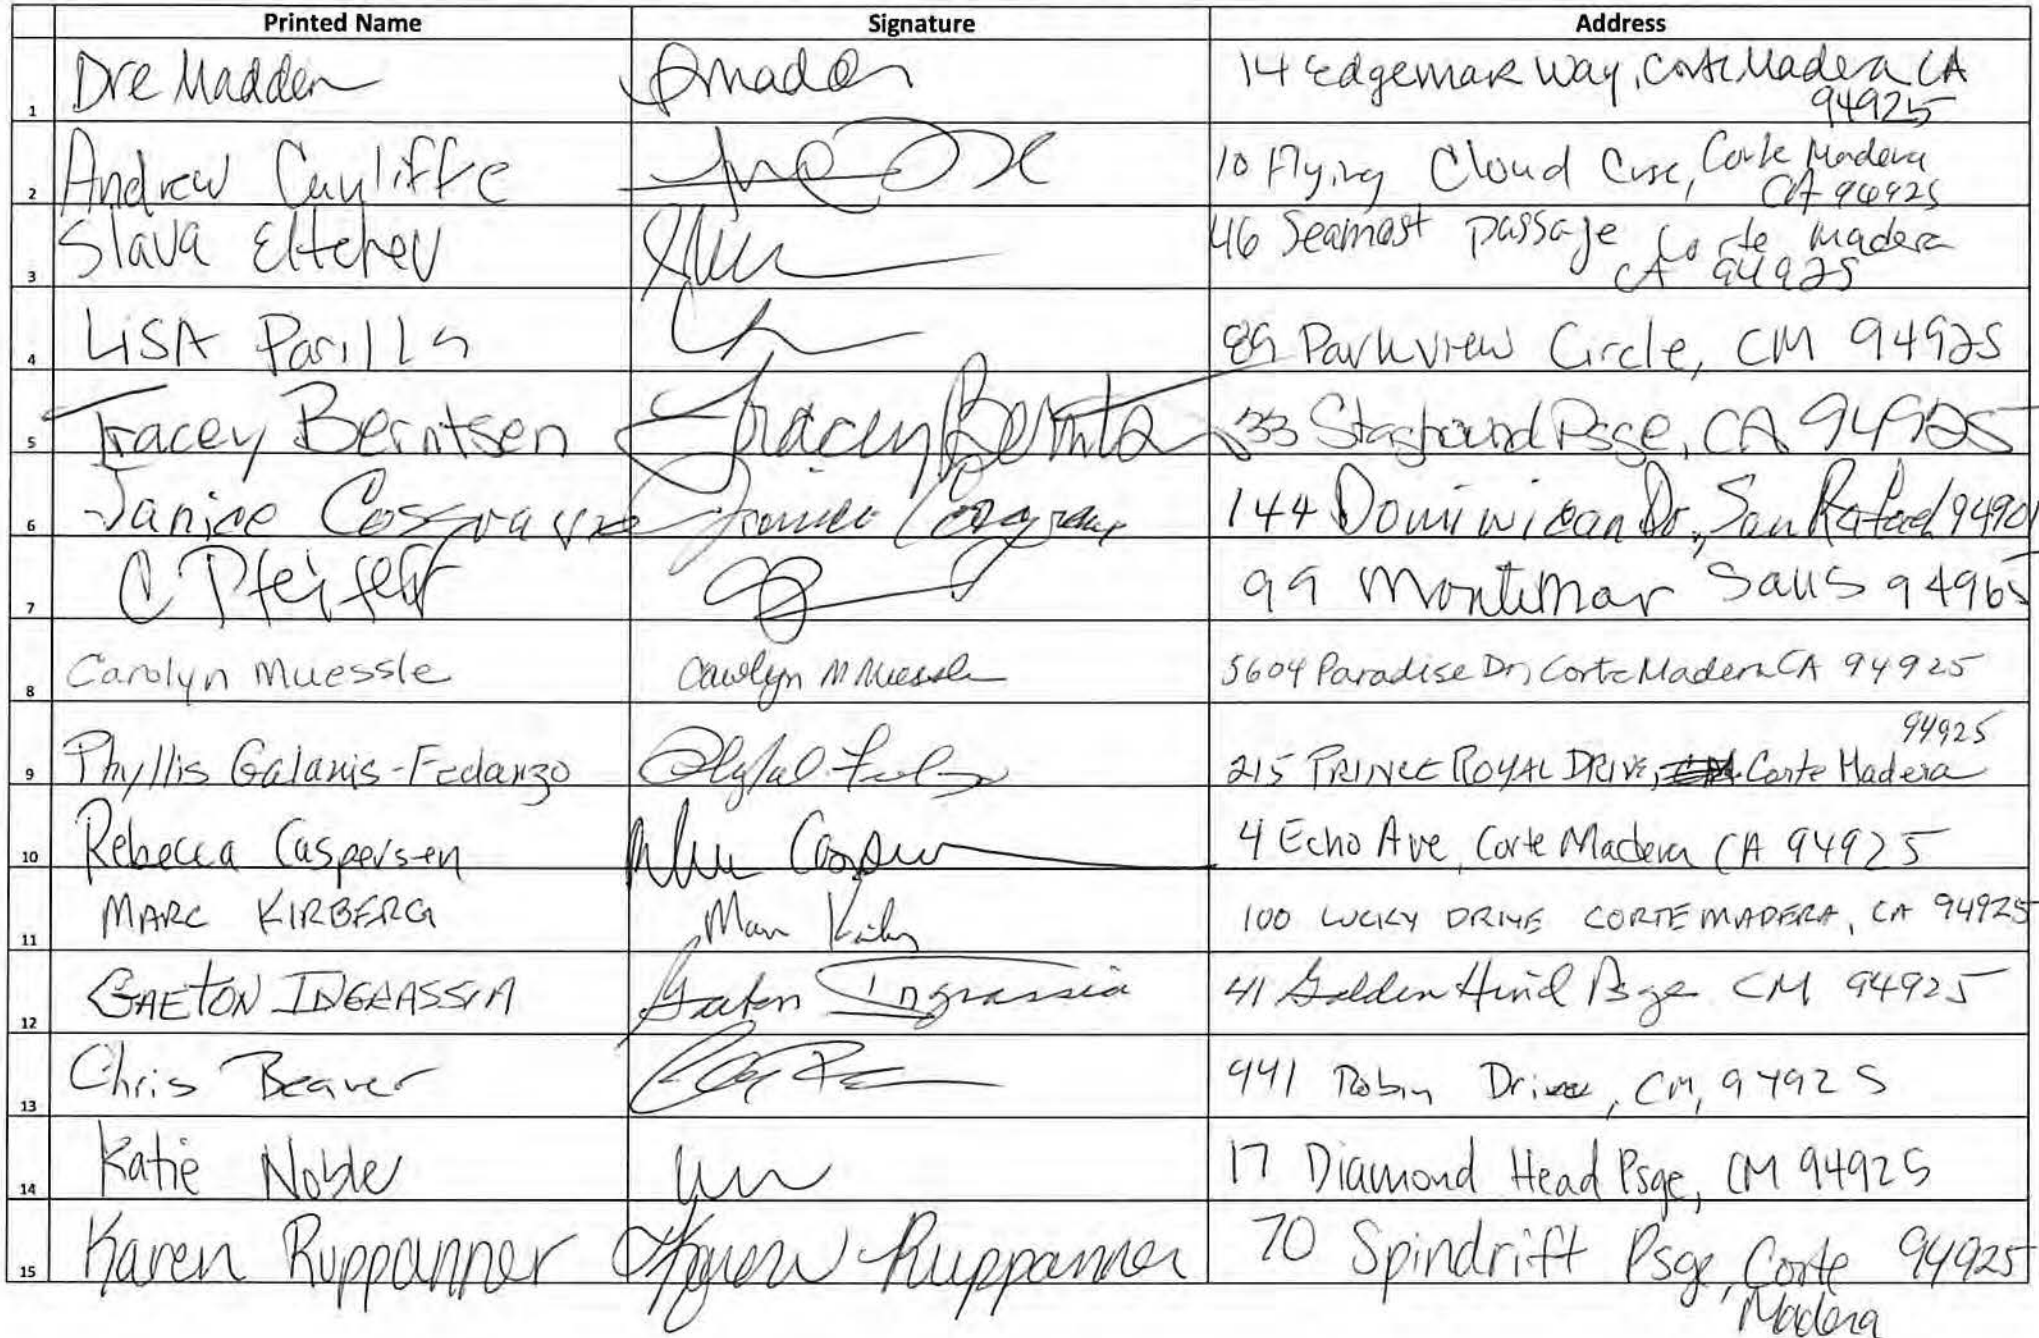 Printed Name Signature Address
1 Dre Madden 14 Edgemar Way, Corte Madera CA
94925
2 Andrew Cunliffe 10 Flying Cloud Crse, Corte Madera
CA 94925
3 Slava Eltchev 46 Seamast passage Corte Madera
CA 94925
4 LiSA Parilla 89 Parkview Circle, CM 94925
5 Tracey Berntsen Tracey Berntsen 33 Staghound Psge, CA 94925
6 Janice Cosgrave Janice Cosgrave 144 Dominican Dr., San Rafael 94901
7 C Pfeifer 99 Montimar Saus 94965
8 Carolyn Muessle Carolyn M Muessle 5604 Paradise Dr, Corte Madera CA 94925
94925
9 Phyllis Galanis-Fedanzo 215 PRINCE ROYAL DRIVE, Corte Madera
10 Rebecca Caspersen 4 Echo Ave, Corte Madera CA 94925
11 MARC KIRBERG 100 LUCKY DRIVE CORTE MADERA, CA 94925
12 GAETON INGRASSIA Gaeton Ingrassia 41 Golden Hind Psge CM 94925
13 Chris Beaver 441 Robin Drive, CM, 94925
14 Katie Noble 17 Diamond Head Psge, CM 94925
15 Karen Ruppanner Karen Ruppanner 70 Spindrift Psge, Corte 94925
Madera